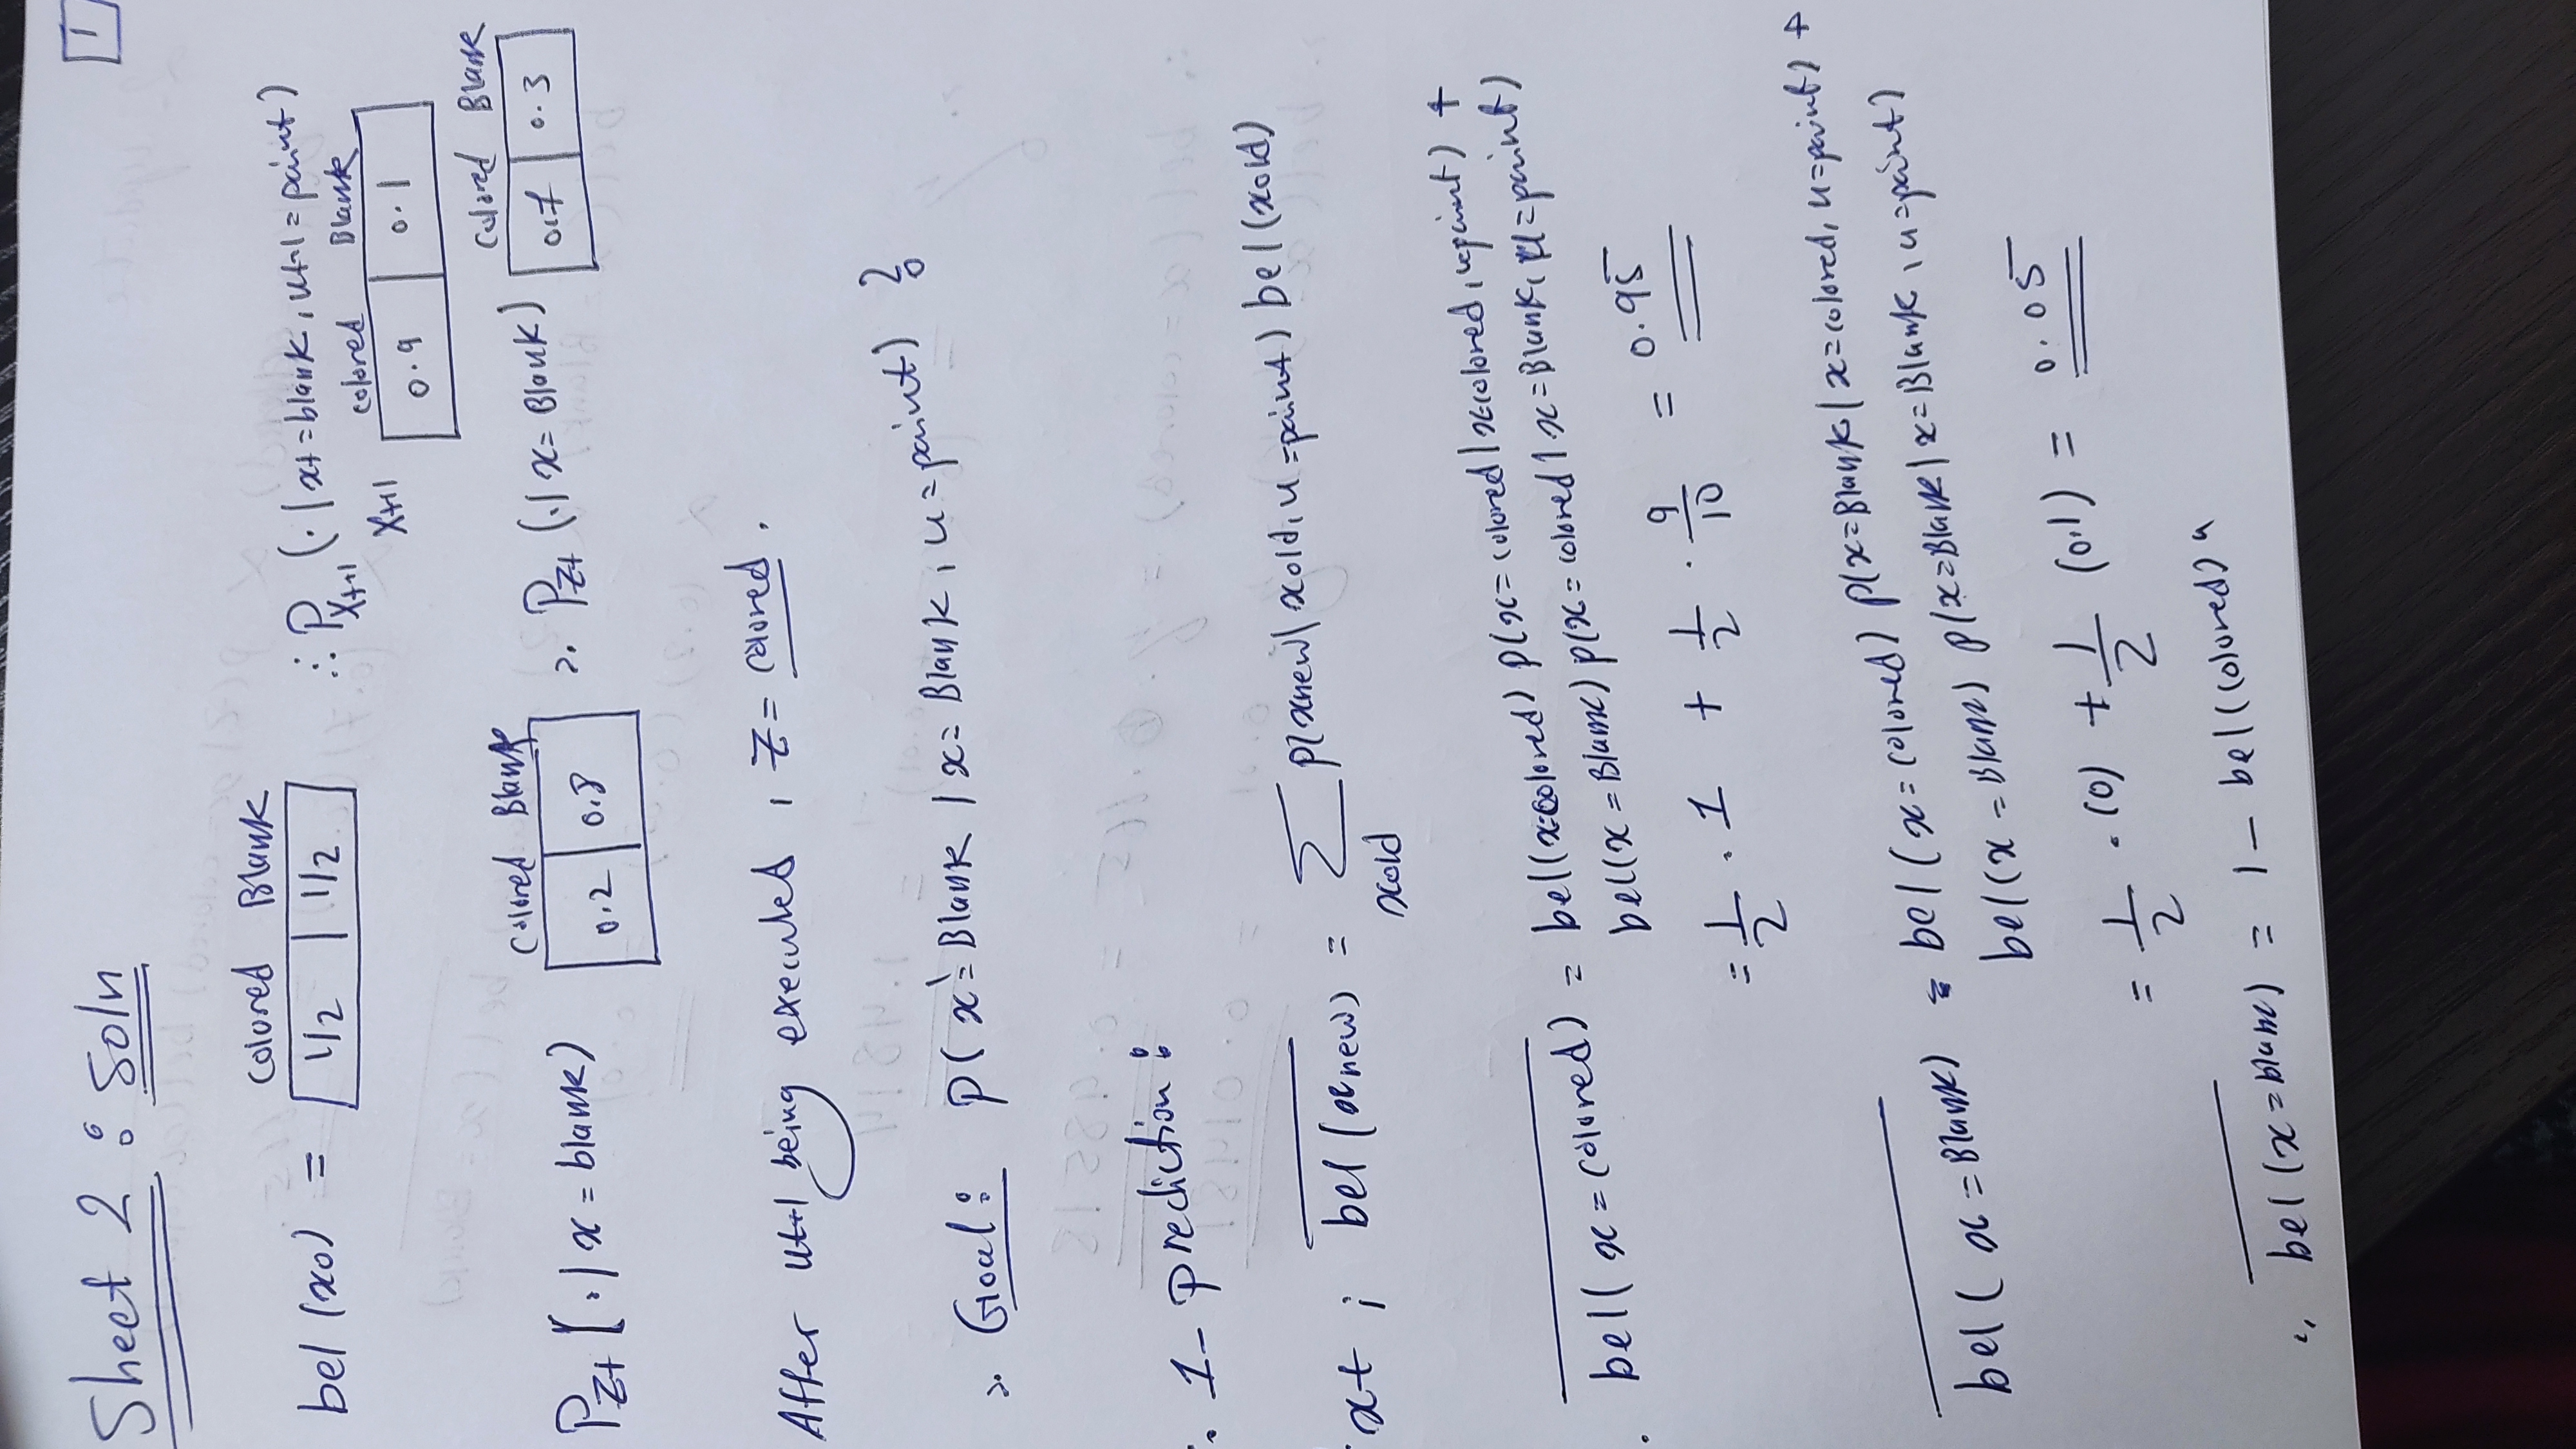 1
Sheet 2 : Soln
Colored Blank
bel (x0) = 1/2 | 1/2
∴ P Xt+1 (· | xt = blank, ut+1 = paint)
Colored Blank
Xt+1 0.9 0.1
Colored Blank
PZt [· | x = blank) 0.2 0.8
∴ PZt (· | x = Blank)
Colored Blank
0.7 0.3
After ut+1 being executed , Z = colored.
∴ Goal : P(x' = Blank | x = Blank, u = paint) ?
1- Prediction :
xt ; bel (xnew) = Σ xold p(xnew | xold, u = paint) bel (xold)
bel (x = colored) = bel (x=colored) p(x = colored | x=colored, u=paint) +
bel (x = Blank) p(x = colored | x = Blank, u = paint)
= 1/2 · 1 + 1/2 · 9/10 = 0.95
bel (x = Blank) = bel (x = colored) p(x = Blank | x = colored, u = paint) +
bel (x = Blank) p(x = Blank | x = Blank, u = paint)
= 1/2 · (0) + 1/2 (0.1) = 0.05
∴ bel (x = blank) = 1 - bel (colored) "